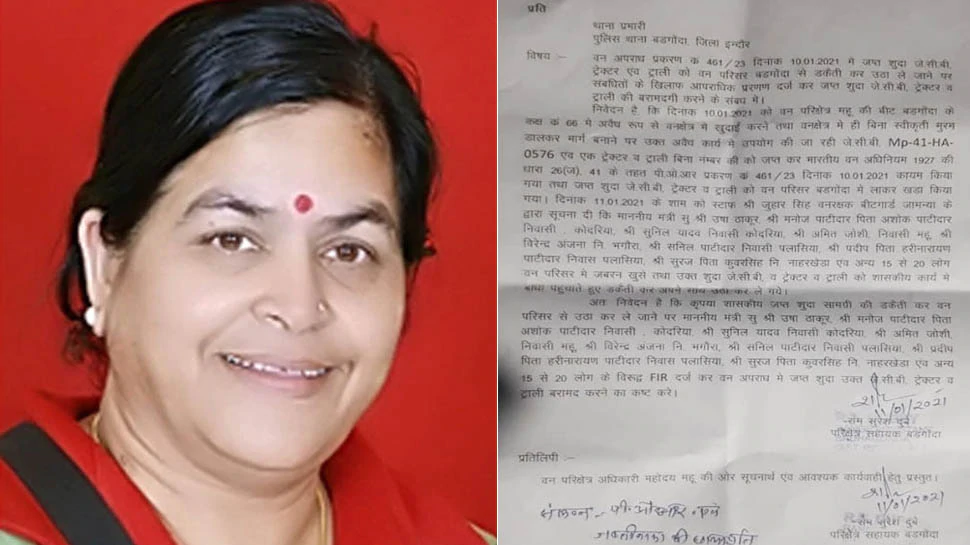 प्रति
थाना प्रभारी
पुलिस थाना बडगोंदा, जिला इन्दौर
विषय :- वन अपराध प्रकरण क 461/23 दिनाक 10.01.2021 मे जप्त शुदा जे.सी.बी,
ट्रेक्टर एंव ट्राली को वन परिसर बडगोंदा से डकैती कर उठा ले जाने पर
संबधितों के खिलाफ आपराधिक प्ररणण दर्ज कर जप्त शुदा जे.सी.बी, ट्रेक्टर व
ट्राली की बरामदगी करने के संबध मे।
निवेदन है, कि दिनाक 10.01.2021 को वन परिक्षेत्र महू की बीट बडगोंदा के
कक्ष क 66 मे अवैध रूप से वनक्षेत्र मे खुदाई करने तथा वनक्षेत्र मे ही बिना स्वीकृती मुरम
डालकर मार्ग बनाने पर उक्त अवैध कार्य मे उपयोग की जा रही जे.सी.बी. Mp-41-HA-
0576 एंव एक ट्रेक्टर व ट्राली बिना नम्बर की को जप्त कर भारतीय वन अधिनियम 1927 की
धारा 26(ज), 41 के तहत पी.ओ.आर प्रकरण क 461/23 दिनाक 10.01.2021 कायम किया
गया तथा जप्त शुदा जे.सी.बी, ट्रेक्टर व ट्राली को वन परिसर बडगोंदा मे लाकर खडा किया
गया। दिनाक 11.01.2021 के शाम को स्टाफ श्री जुहार सिंह वनरक्षक बीटगार्ड जामन्या के
द्वारा सूचना दी कि माननीय मंत्री सु श्री उषा ठाकुर, श्री मनोज पाटीदार पिता अशोक पाटीदार
निवासी . कोदरिया, श्री सुनिल यादव निवासी कोदरिया, श्री अमित जोशी, निवासी महू, श्री
विरेन्द्र अंजना नि. भगौरा, श्री सनिल पाटीदार निवासी पलासिया, श्री पदीप पिता हरीनारायण
पाटीदार निवास पलासिया, श्री सुरज पिता कुवरसिह नि. नाहरखेडा एंव अन्य 15 से 20 लोग
वन परिसर मे जबरन घुस तथा उक्त शुदा जे.सी.बी, व ट्रेक्टर व ट्राली को शासकीय कार्य मे
बाधा पहुचाते हुए डकैती कर अपने साथ उठा कर ले गये।
अतः निवेदन है कि कृपया शासकीय जप्त शुदा सामग्री की डकैती कर वन
परिसर से उठा कर ले जाने पर माननीय मंत्री सु श्री उषा ठाकुर, श्री मनोज पाटीदार पिता
अशोक पाटीदार निवासी . कोदरिया, श्री सुनिल यादव निवासी कोदरिया, श्री अमित जोशी,
निवासी महू, श्री विरेन्द्र अंजना नि. भगौरा, श्री सनिल पाटीदार निवासी पलासिया, श्री प्रदीप
पिता हरीनारायण पाटीदार निवास पलासिया, श्री सुरज पिता कुवरसिह नि. नाहरखेडा एंव अन्य
15 से 20 लोग के विरुद्ध FIR दर्ज कर वन अपराध मे जप्त शुदा उक्त जे.सी.बी, ट्रेक्टर व
ट्राली बरामद करने का कष्ट करे।
11/01/2021
राम सुरेश दुबे
परिक्षेत्र सहायक बडगोंदा
प्रतिलिपी :-
वन परिक्षेत्र अधिकारी महोदय महू की ओर सूचनार्थ एंव आवश्यक कार्यवाही हेतु प्रस्तुत।
11/01/2021
राम सुरेश दुबे
परिक्षेत्र सहायक बडगोंदा
संलग्न - पी.ओ.आर